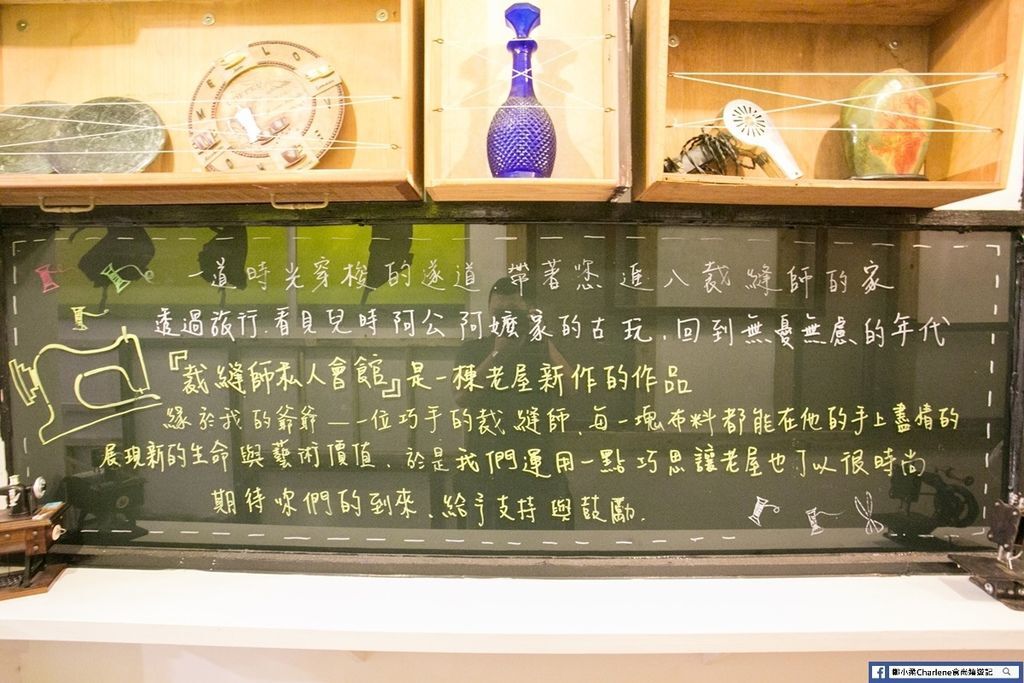 WELCOME
一道時光穿梭的遂道 帶著您 進入裁縫師的家
透過旅行.看見兒時阿公阿嬤家的古玩.回到無憂無慮的年代
『裁縫師私人會館』是一棟老屋新作的作品
緣於我的爺爺——一位巧手的裁縫師.每一塊布料都能在他的手上盡情的
展現新的生命與藝術價值.於是我們運用一點巧思讓老屋也可以很時尚
期待你們的到來.給予支持與鼓勵.
鄭小柔Charlene食尚踏遊記